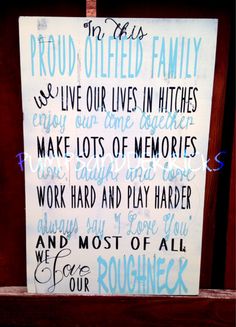 In This
PROUD OILFIELD FAMILY
we LIVE OUR LIVES IN HITCHES
enjoy our time together
MAKE LOTS OF MEMORIES
live, laugh and love
WORK HARD AND PLAY HARDER
always say "I Love You"
AND MOST OF ALL
WE Love OUR ROUGHNECK